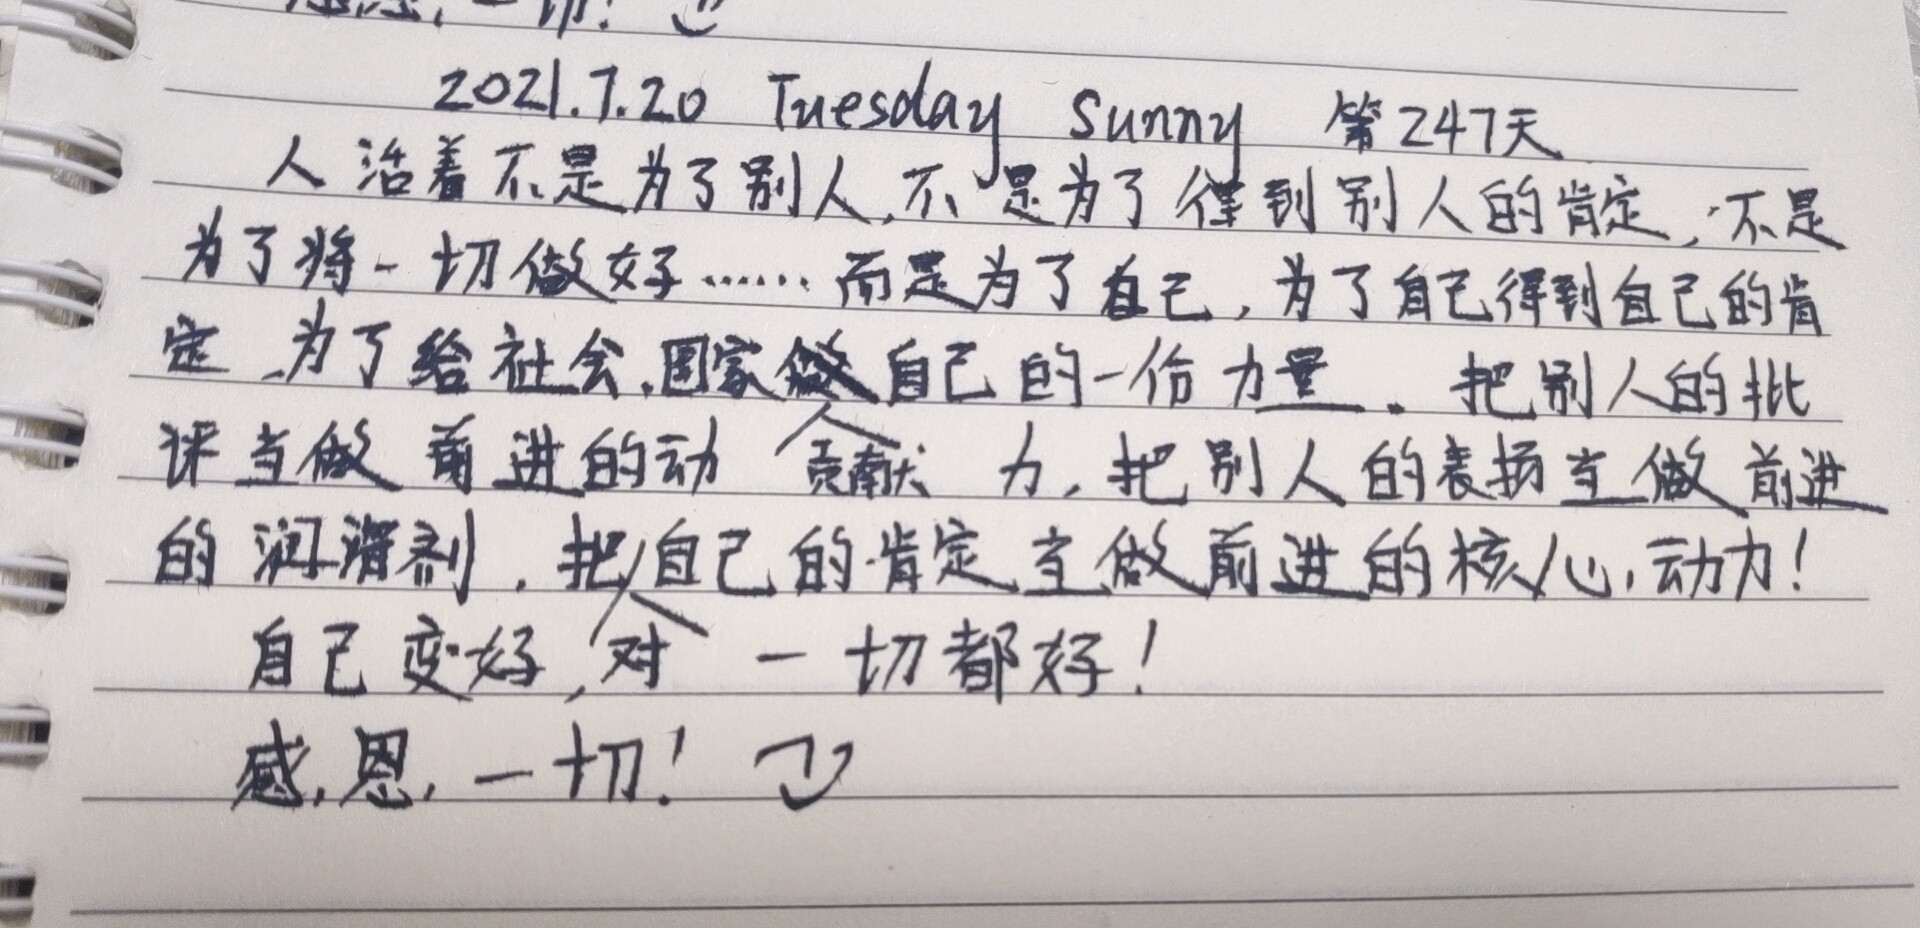 感恩,一切!
2021.7.20 Tuesday Sunny 第247天
人活着不是为了别人,不是为了得到别人的肯定,不是
为了将一切做好……而是为了自己,为了自己得到自己的肯
定、为了给社会、国家贡献自己的一份力量.把别人的批
评当做前进的动力,把别人的表扬当做前进
的润滑剂,把对自己的肯定当做前进的核心动力!
自己变好,一切都好!
感恩,一切!